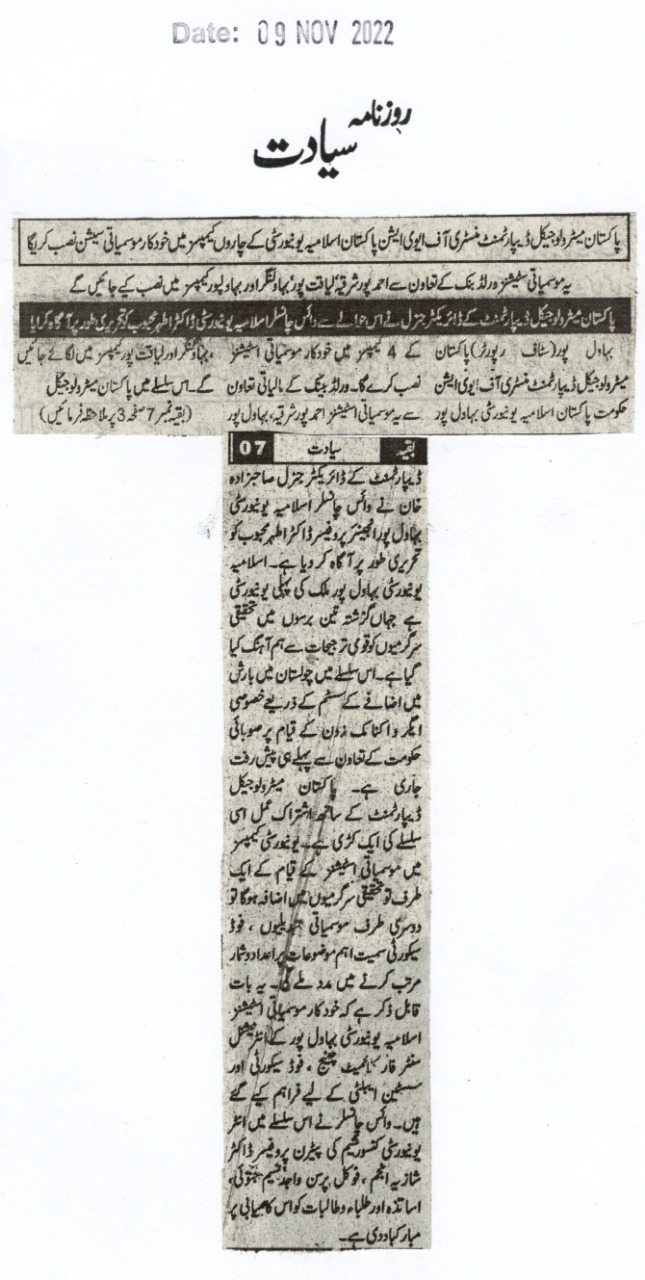 Date: 09 NOV 2022
روزنامہ
سیادت
پاکستان میٹرولوجیکل ڈیپارٹمنٹ منسٹری آف ایوی ایشن پاکستان اسلامیہ یونیورسٹی کے چاروں کیمپسز میں خودکار موسمیاتی سٹیشن نصب کریگا
یہ موسمیاتی سٹیشنز ورلڈ بنک کے تعاون سے احمد پور شرقیہ، لیاقت پور، بہاولنگر اور بہاولپور کیمپسز میں نصب کیے جائیں گے
پاکستان میٹرولوجیکل ڈیپارٹمنٹ کے ڈائریکٹر جنرل نے اس حوالے سے وائس چانسلر اسلامیہ یونیورسٹی ڈاکٹر اطہر محبوب کو تحریری طور پر آگاہ کر دیا
بہاول پور(سٹاف رپورٹر)پاکستان
میٹرولوجیکل ڈیپارٹمنٹ منسٹری آف ایوی ایشن
حکومت پاکستان اسلامیہ یونیورسٹی بہاول پور
کے 4 کیمپسز میں خودکار موسمیاتی اسٹیشنز
نصب کرے گا۔ ورلڈ بینک کے مالیاتی تعاون
سے یہ موسمیاتی اسٹیشنز احمد پور شرقیہ، بہاول پور
، بہاولنگر اور لیاقت پور کیمپسز میں لگائے جائیں
گے۔ اس سلسلے میں پاکستان میٹرولوجیکل
(بقیہ نمبر 7 صفحہ 3 پر ملاحظہ فرمائیں)
بقیہ سیادت 07
ڈیپارٹمنٹ کے ڈائریکٹر جنرل صاحبزادہ
خان نے وائس چانسلر اسلامیہ یونیورسٹی
بہاول پور انجینئر پروفیسر ڈاکٹر اطہر محبوب کو
تحریری طور پر آگاہ کر دیا ہے۔ اسلامیہ
یونیورسٹی بہاول پور ملک کی پہلی یونیورسٹی
ہے جہاں گزشتہ تین برسوں میں تحقیقی
سرگرمیوں کو قومی ترجیحات سے ہم آہنگ کیا
گیا ہے۔ اس سلسلے میں چولستان میں بارش
میں اضافے کے سسٹم کے ذریعے خصوصی
ایگرو اکنامک زون کے قیام پر صوبائی
حکومت کے تعاون سے پہلے ہی پیش رفت
جاری ہے۔ پاکستان میٹرولوجیکل
ڈیپارٹمنٹ کے ساتھ اشتراک عمل اسی
سلسلے کی ایک کڑی ہے۔ یونیورسٹی کیمپسز
میں موسمیاتی اسٹیشنز کے قیام کے ایک
طرف تو تحقیقی سرگرمیوں میں اضافہ ہوگا تو
دوسری طرف موسمیاتی تبدیلیوں ، فوڈ
سیکورٹی سمیت اہم موضوعات پر اعداد و شمار
مرتب کرنے میں مدد ملے گی۔ یہ بات
قابل ذکر ہے کہ خودکار موسمیاتی اسٹیشنز
اسلامیہ یونیورسٹی بہاول پور کے انٹرنیشنل
سنٹر فار کلائمیٹ چینج ، فوڈ سیکورٹی اور
سسٹین ایبلٹی کے لیے فراہم کیے گئے
ہیں۔ وائس چانسلر نے اس سلسلے میں انٹر
یونیورسٹی کنسورشیم کی پیٹرن پروفیسر ڈاکٹر
شازیہ انجم ، فوکل پرسن واجد نسیم جتوئی،
اساتذہ اور طلباء و طالبات کو اس کامیابی پر
مبارکباد دی ہے۔